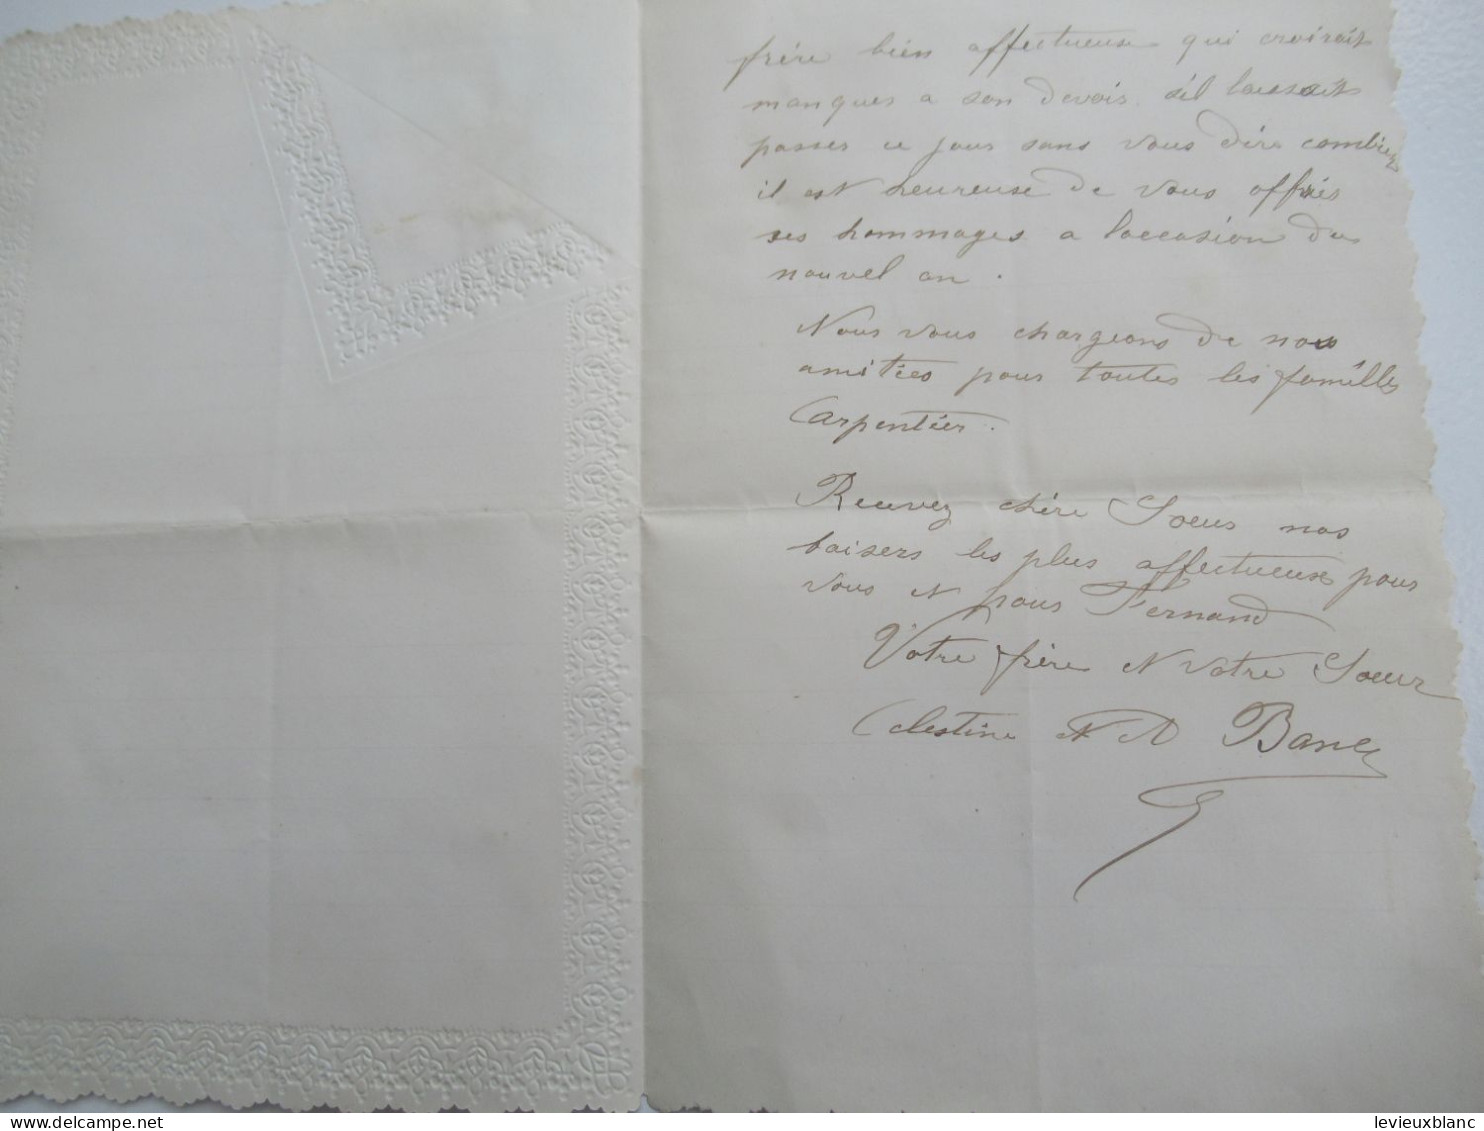 frère bien affectueux qui croirait
manquer a son devoir s'il laissait
passer ce jour sans vous dire combien
il est heureuse de vous offrir
ses hommages a l'occasion du
nouvel an.
Nous vous chargeons de nos
amitiés pour toutes les familles
Carpentier.
Recevez chère Soeur nos
baisers les plus affectueux pour
vous et pour Fernand
Votre frère et votre Soeur
Celestine et A
levieuxblanc